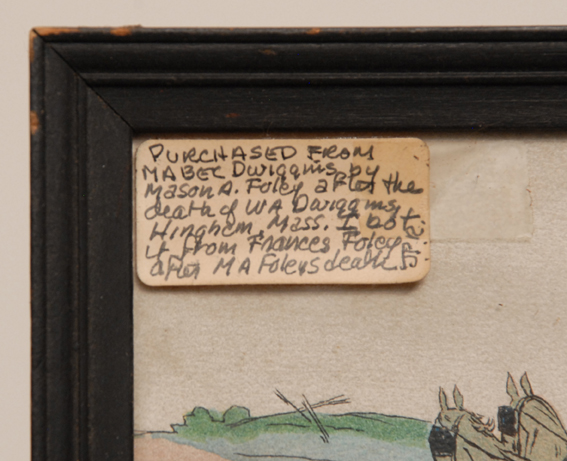 PURCHASED FROM
MABEL Dwiggins by
Mason A. Foley after the
death of WA Dwiggins,
Hinghem, Mass. I bot
it from Frances Foley
after M A Foleys death